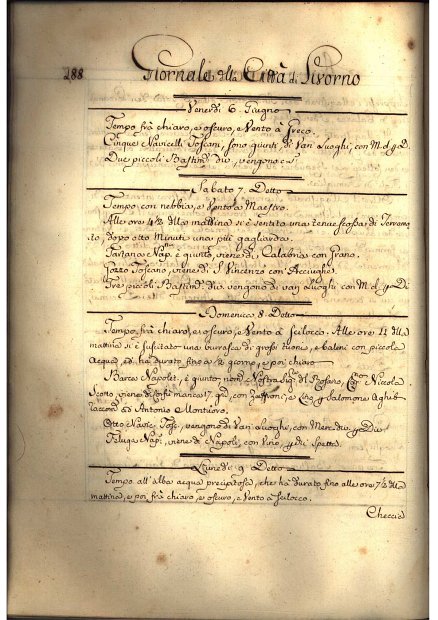 188
Giornale della Città di Livorno
Venerdì 6 Giugno
Tempo frà chiaro, e oscuro, e Vento à Greco.
Cinque Navicelli Toscani, sono giunti di Varj Luoghi, con M. d. p. D.
Due piccoli Bastim.ti div. vengono
Sabato 7. Detto
Tempo con nebbia, e Vento à Maestro.
Alle ore 4 1/2 della mattina si è sentita una tenue scossa di Terremo
to, dopo otto Minuti una più gagliarda.
Tartana Nap.na è giunta, viene di Calabria con Grano.
Gozzo Toscano, viene di S. Vincenzo con Acciughe.
Tre piccoli Bastim.ti div. vengono di varj Luoghi con M. d. p. D.
Domenica 8. Detto
Tempo, frà chiaro, e oscuro, e Vento à Scilocco. Alle ore 11 della
mattina si è suscitata una burrasca di grossi tuoni, e baleni con piccola
Acqua, ed hà durato fino à 1/2 giorno, e poi chiaro
Barca Napolet. è giunta nom. Nostra Sig.ra del Rosaro, Cap. Nicola
Scotto, viene di
con Zaffroni, e
Salomone Aghib
ed Antonio e Montuoro.
Otto Navic. Tosc. vengono di Varj Luoghi, con Mercdiv. p. Div.
Feluga Nap. viene di Napoli, con Vino, p. di Spetta.
Lunedì 9 Detto
Tempo all'alba acqua precipitosa, che hà durato fino alle ore 7 1/2 della
mattina, e poi frà chiaro, e oscuro, e Vento à Scilocco.
Checcia